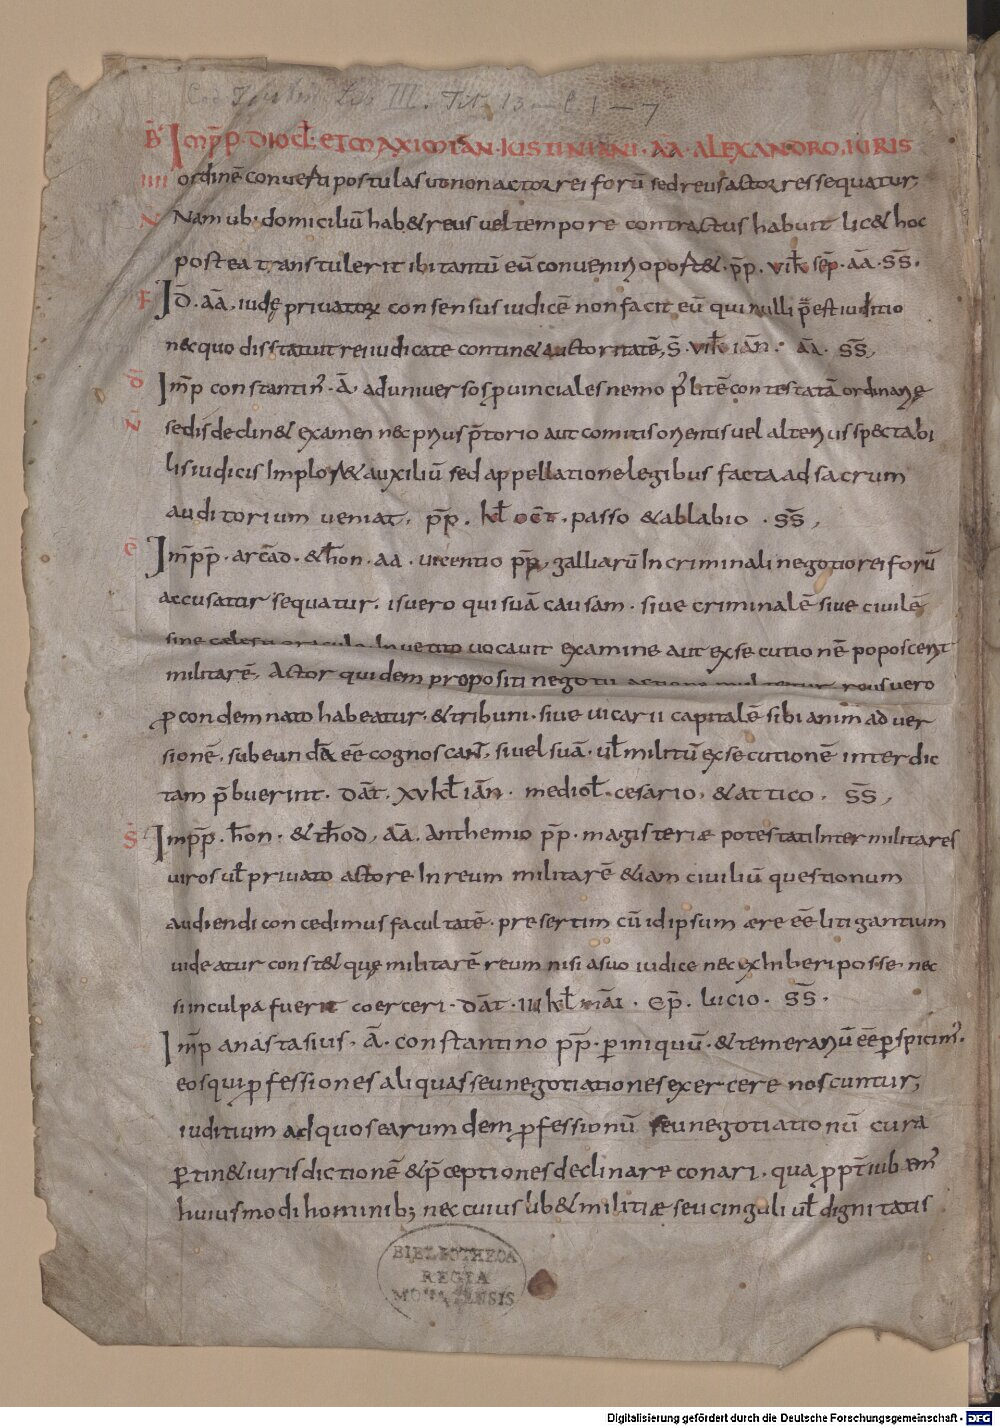 Cod. Lib III. Tit. 13 — C. 1 — 7
B̄ Imp̄p̄. DIOCL̄. ET MAXIMIAN. IUSTINIANI. ĀĀ. ALEXANDRO. IURIS
IIII ordinē conuerti postulas ut non actor rei forū sed reus actoris sequatur,
N̄ Nam ubi domiciliū hab& reus uel tempore contractus habuit lic& hoc
postea transtulerit ibi tantū eū conueniri oport&. p̄p. viīk sep̄. āā. s̄s̄.
F̄ Id̄. āā. iudę priuatorꝝ consensus iudicē non facit eū qui nulli p̄est iuditio
nec quo dis statuit rei iudicate contin& auctoritatē, s̄. viīk iān. āā. s̄s̄,
D̄ Im̄p constantin̄. ā. ad uniuersos ꝓuinciales nemo p̄ litē contestatā ordinarię
N̄ sedis declin& examen nec prius p̄torio aut comitis orientis uel alterius spectabi
lis iudicis implor& auxiliū sed appellatione legibus facta ad sacrum
auditorium ueniat. p̄p. kl̄ oct̄. passo & ablabio. s̄s̄,
Ē Im̄pp̄. arcad̄. & hon̄. aa. uicentio pp̄. galliarū In criminali negotio rei forū
accusator sequatur. is uero qui suā causam. siue criminalē siue ciuilē
sine cælesti oraculo In uetito uocauit examine aut exsecutionē poposcerit
militarē, Actor quidem propositi negotii actione multetur reus uero
ꝓ condemnato habeatur. & tribuni. siue uicarii capitalē sibi animaduer
sionē. subeundā eē cognoscant̄. si uel suā. ul̄ militū exsecutionē interdic
tam p̄buerint. dāt. xv kl̄ iān. mediol̄. cesario. & attico. s̄s̄,
S̄ Imp̄p̄. hon̄. & thōd. āā. Anthemio p̄p. magisteriæ potestati Inter militares
uiros ul̄ priuato actore In reum militarē &iam ciuiliū questionum
audiendi concedimus facultatē. presertim cū id ipsum ære eē litigantium
uideatur const& quę militarē reum nisi a suo iudice nec exhiberi posse. nec
si in culpa fuerit coerceri. dāt. iii kl̄ māi. ep̄. lucio. s̄s̄.
Im̄p anastasius. ā. constantino p̄p. ꝑ iniquū. & temerariū eē ꝑspicim̄.
eos qui ꝓfessiones aliquas seu negotiationes exercere noscuntur,
iuditium ad quos earumdem ꝓfessionū seu negotiationū cura
ꝑtin& iurisdictionē & p̄ceptiones declinare conari. qua ꝓpt̄ iubem̄
huiusmodi hominib; nec cuiuslib& militiæ seu cinguli ul̄ dignitatis
BIBLIOTHECA
REGIA
MONACENSIS
Digitalisierung gefördert durch die Deutsche Forschungsgemeinschaft - DFG